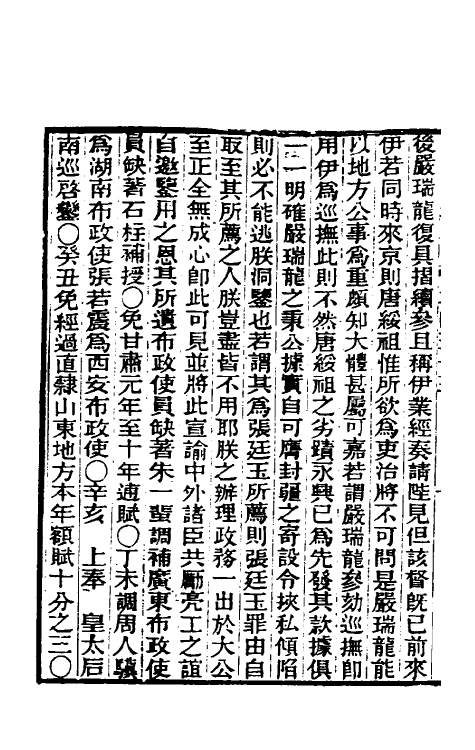 後嚴瑞龍復具摺續參且稱伊業經奏請陛見但該督旣已前來
伊若同時來京則唐綏祖惟所欲爲吏治將不可問是嚴瑞龍能
以地方公事爲重頗知大體甚屬可嘉若謂嚴瑞龍參劾巡撫卽
用伊爲巡撫此則不然唐綏祖之劣蹟永興已爲先發其款據俱
一一明確嚴瑞龍之秉公據實自可膺封疆之寄設令挾私傾陷
則必不能逃朕洞鑒也若謂其爲張廷玉所薦則張廷玉罪由自
取至其所薦之人朕豈盡皆不用耶朕之辦理政務一出於大公
至正全無成心卽此可見並將此宣諭中外諸臣共勵亮工之誼
自邀鑒用之恩其所遺布政使員缺著朱一蜚調補廣東布政使
員缺著石柱補授○免甘肅元年至十年逋賦○丁未調周人驥
爲湖南布政使張若震爲西安布政使○辛亥　上奉　皇太后
南巡啓鑾○癸丑免經過直隸山東地方本年額賦十分之三○